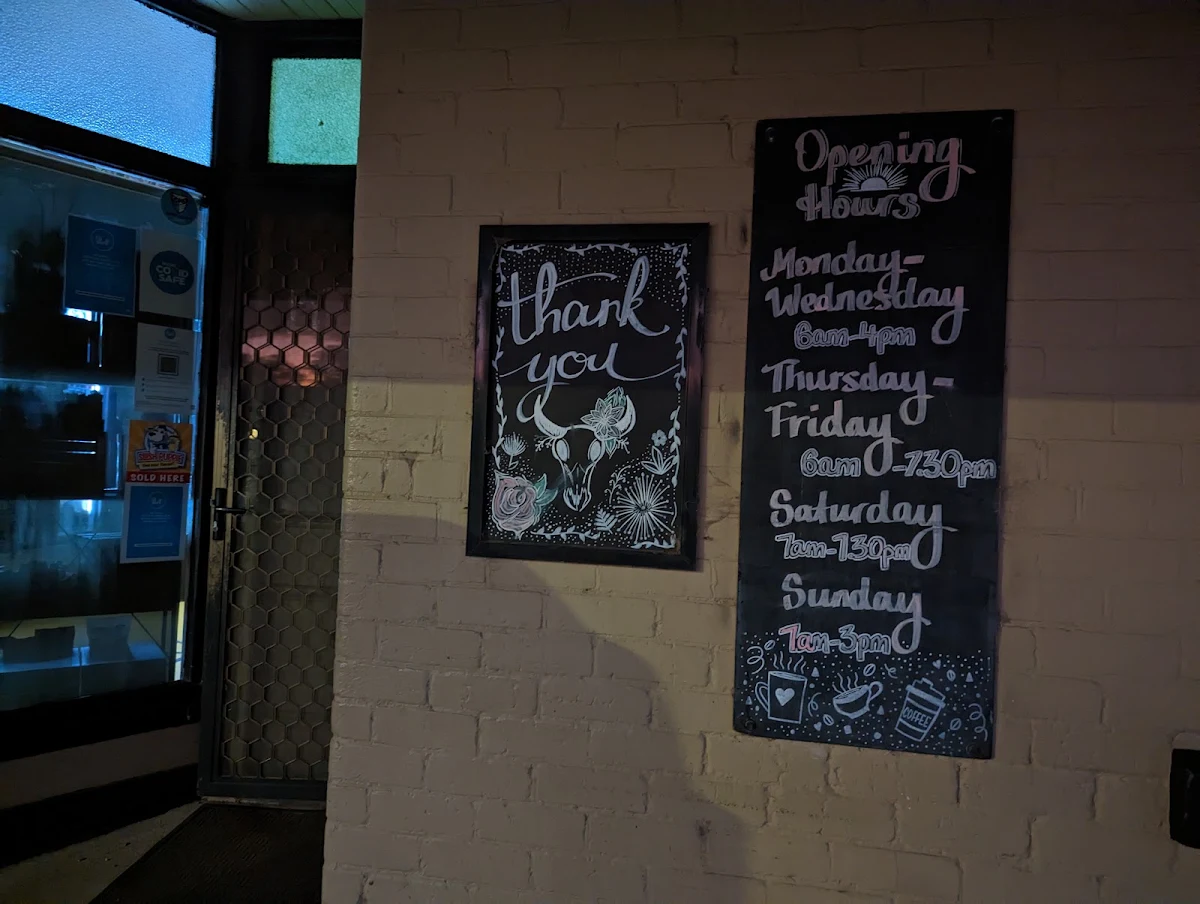 COVID
SAFE
SOLD HERE
thank
you
Opening
Hours
Monday-
Wednesday
6am-4pm
Thursday-
Friday
6am-7.30pm
Saturday
7am-7.30pm
Sunday
7am-3pm
COFFEE